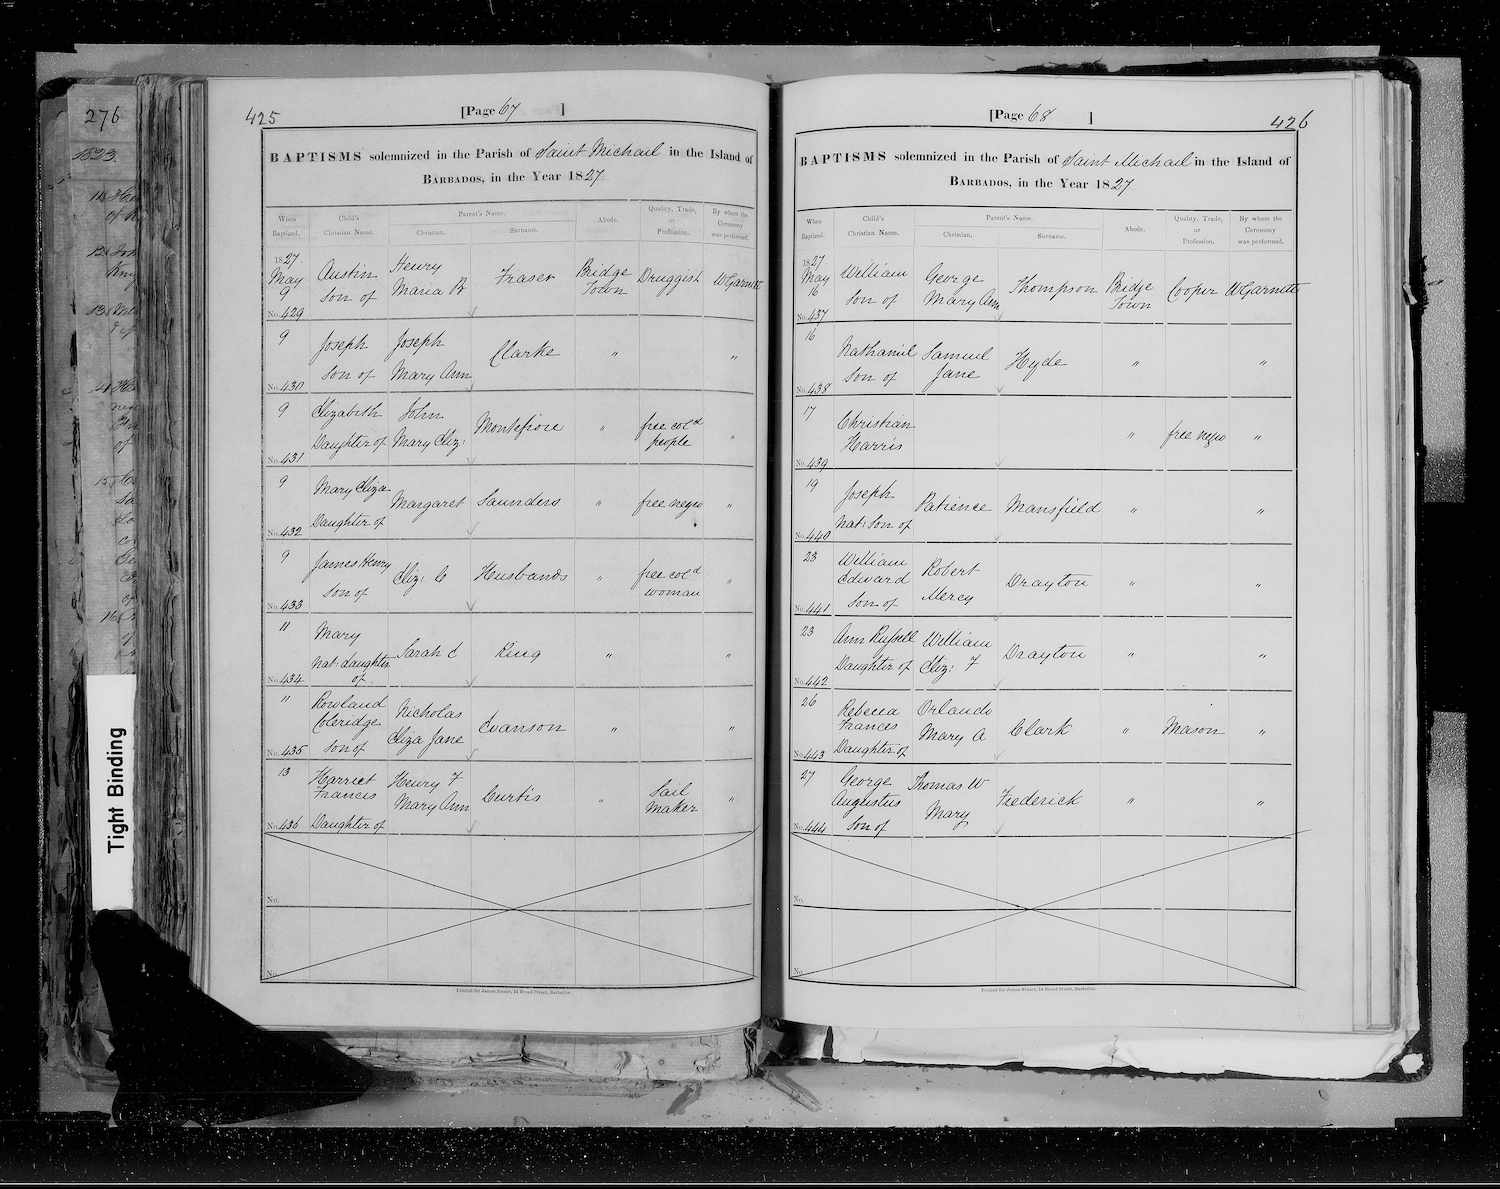 276
1823
Tight Binding
425
[Page 67 ]
BAPTISMS solemnized in the Parish of Saint Michael in the Island of
BARBADOS, in the Year 1827
When Baptized. Child's Christian Name. Parent's Name. Christian. Surname. Abode. Quality, Trade, or Profession. By whom the Ceremony was performed.
1827
May Austin Henry Fraser Bridge Druggist W Garnett
9 son of Maria B Town
No. 429
9 Joseph Joseph Clarke " "
son of Mary Ann
No. 430
9 Elizabeth John Montefiore " free cold "
Daughter of Mary Eliz: people
No. 431
9 Mary Eliza Margaret Saunders " free negro "
Daughter of
No. 432
9 James Henry Eliz: C Husbands " free cold "
son of woman
No. 433
11 Mary Sarah E King " "
nat: daughter
No. 434 of
11 Rowland Nicholas Evanson " "
Coleridge Eliza Jane
No. 435 son of
13 Harriet Henry F Curtis " Sail "
Frances Mary Ann Maker
No. 436 Daughter of
No.
No.
Printed for James Stuart, 14 Broad Street, Barbados.
[Page 68 ]
426
BAPTISMS solemnized in the Parish of Saint Michael in the Island of
BARBADOS, in the Year 1827
When Baptized. Child's Christian Name. Parent's Name. Christian. Surname. Abode. Quality, Trade, or Profession. By whom the Ceremony was performed.
1827
May William George Thompson Bridge Cooper W Garnett
16 son of Mary Ann Town
No. 437
16 Nathaniel Samuel Hyde " "
son of Jane
No. 438
17 Christian " free negro "
Harris
No. 439
19 Joseph Patience Mansfield " "
nat: son of
No. 440
23 William Robert Drayton " "
Edward Mercy
No. 441 son of
23 Ann Russell William Drayton " "
Daughter of Eliz: F
No. 442
26 Rebecca Orlando Clark " Mason "
Frances Mary A
No. 443 Daughter of
27 George Thomas W Frederick " "
Augustus Mary
No. 444 son of
No.
No.
Printed for James Stuart, 14 Broad Street, Barbados.